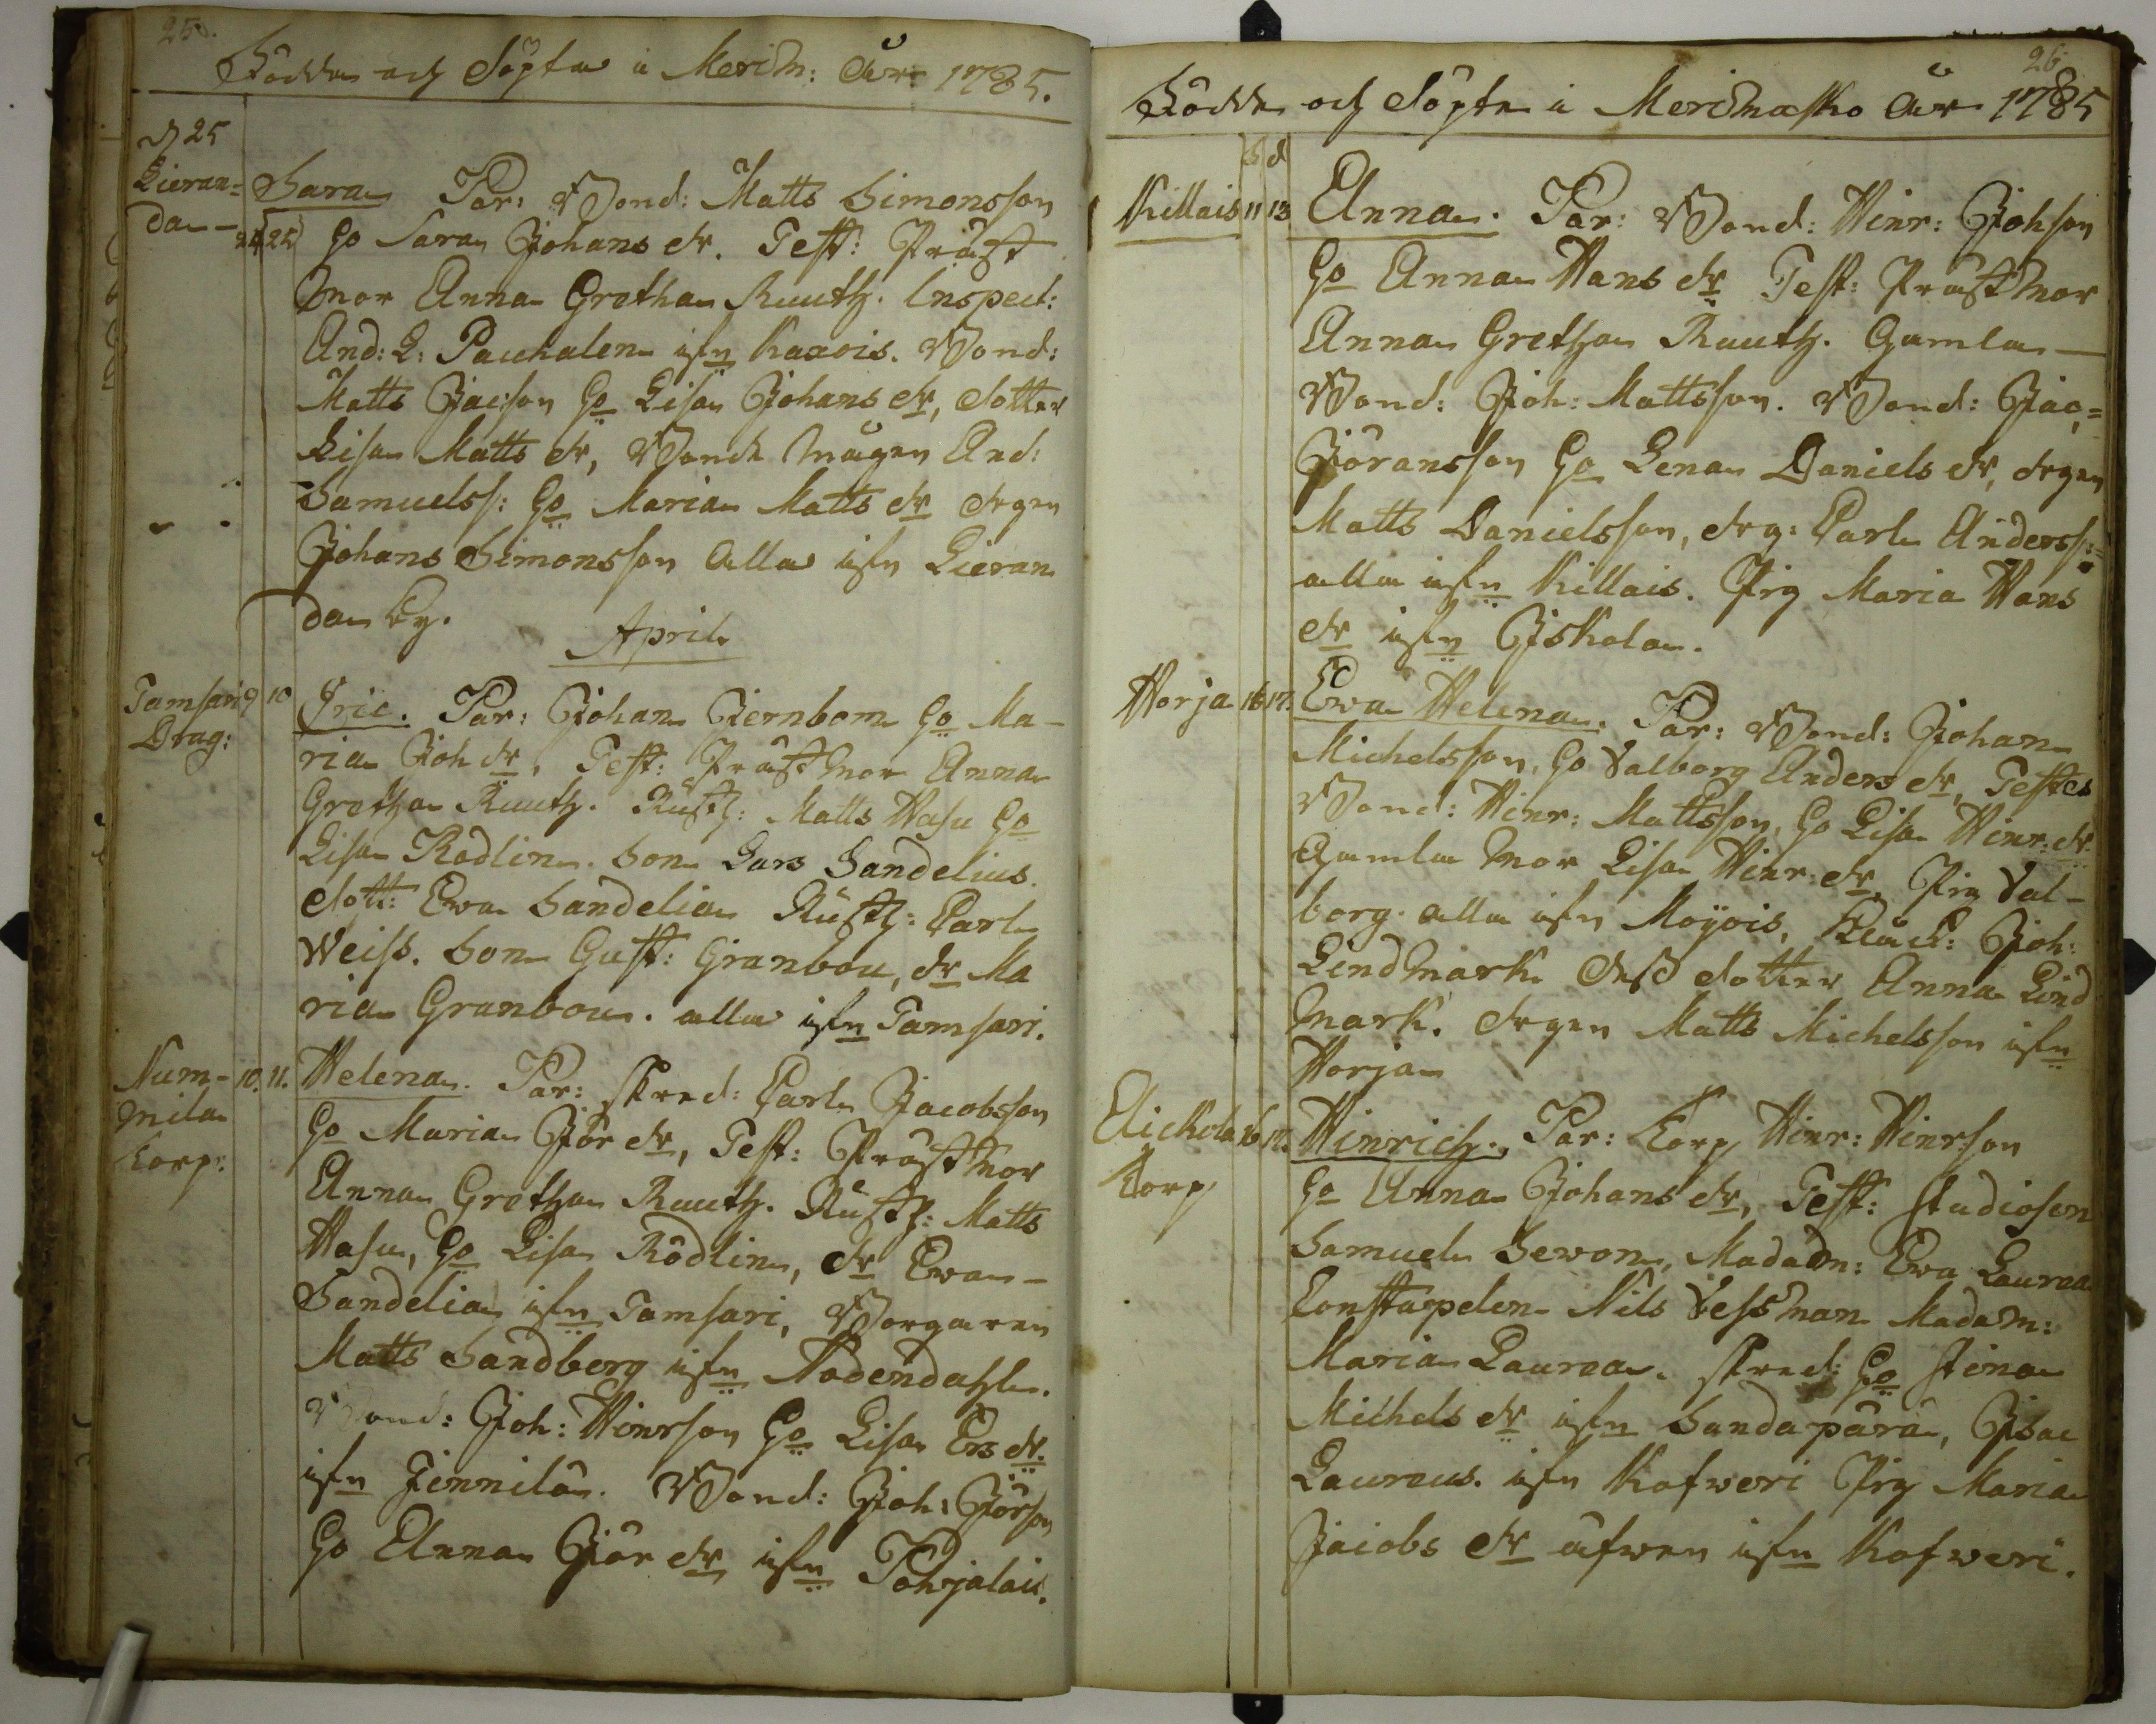 25.
Födde och Döpte i Merim: År 1785.
d 25
Lieran=
da
24 25
Sara Par: Bond: Matts Simonsson
Ho Sara Johans dr. Test: Präst
mor Anna Gretha Ruuth. Inspect:
And: L: Pacchalen ifrn Kaxois. Bond:
Matts Jacson Ho Lisa Johans dr, dotter
Lisa Matts dr, Bonde mågen And:
Samuelss: Ho Maria Matts dr drgen
Johans Simonsson alla ifrn Lieran
da by.
April
Tamsari 9 10
Drag:
Eric. Par: Johan Jernbom Ho Ma-
ria Joh dr, Test: Prästmor Anna
Gretha Ruuth. Rusth: Matts Wasu Ho
Lisa Rodlin. Son Lars Sandelius.
dott: Ewa Sandelia Rusth: Carl
Weiss. Son Gust: Granbou, dr Ma
ria Granbou. alla ifrn Tamsari.
Num- 10. 11.
mila
Torp:
Helena. Par: skred: Carl Jacobsson
Ho Maria Jör dr, Test: Prästmor
Anna Gretha Ruuth. Rusth: Matts
Wasu, Ho Lisa Rodlin, dr Ewa
Sandelia ifrn Tamsari, Borgaren
Matts Sandberg ifrn Nådendahl.
Bond: Joh: Hinrson Ho Lisa Ers dr.
ifrn Jinnilä. Bond: Joh: Jörson
Ho Anna Jör dr ifrn Pohjalais.
26
Födde och Döpte i Merimasko År 1785
f d
Killais 11 13
Anna. Par: Bond: Hinr: Johson
Ho Anna Hans dr Test: Prästmor
Anna Gretha Ruuth. Gamla
Bond: Joh: Mattsson. Bond: Jac:
Göransson Ho Lena Daniels dr, drgen
Matts Danielsson, drg: Carl Anderss:
alla ifrn Killais. Pig Maria Hans
dr ifrn Iskola.
Horja 16 17.
Ewa Helena. Par: Bond: Johan
Michelsson, Ho Valborg Anders dr, Testes
Bond: Hinr: Mattsson, Ho Lisa Hinr: dr.
Gamla mor Lisa Hinr: dr. Pig Val-
borg. alla ifrn Moijois, Klåck: Joh:
Lindmark dess dotter Anna Lind
mark. drgen Matts Michelsson ifrn
Horja
Aickola 16 17.
Torp
Hinrich. Par: Torp Hinr: Hinrson
Ho Anna Johans dr, Test: studiosen
Samuel Sewon, Madam: Ewa Laurea
Constapelen Nils Vessman Madam:
Maria Laurea. skred: Ho Stina
Michels dr ifrn Sundapära, Isac
Laureus. ifrn Kofweri Pig Maria
Jacobs dr äfwen ifrn Kofweri.